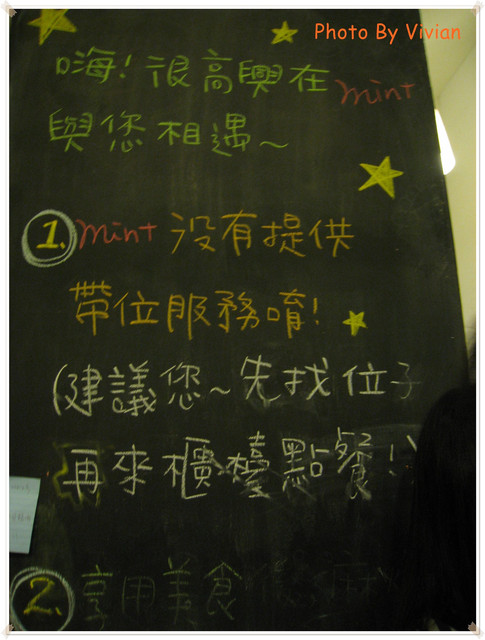 Photo By Vivian
嗨!很高興在mint
與您相遇~
1. mint 沒有提供
帶位服務唷!
(建議您~先找位子
再來櫃檯點餐!)
2. 享用美食